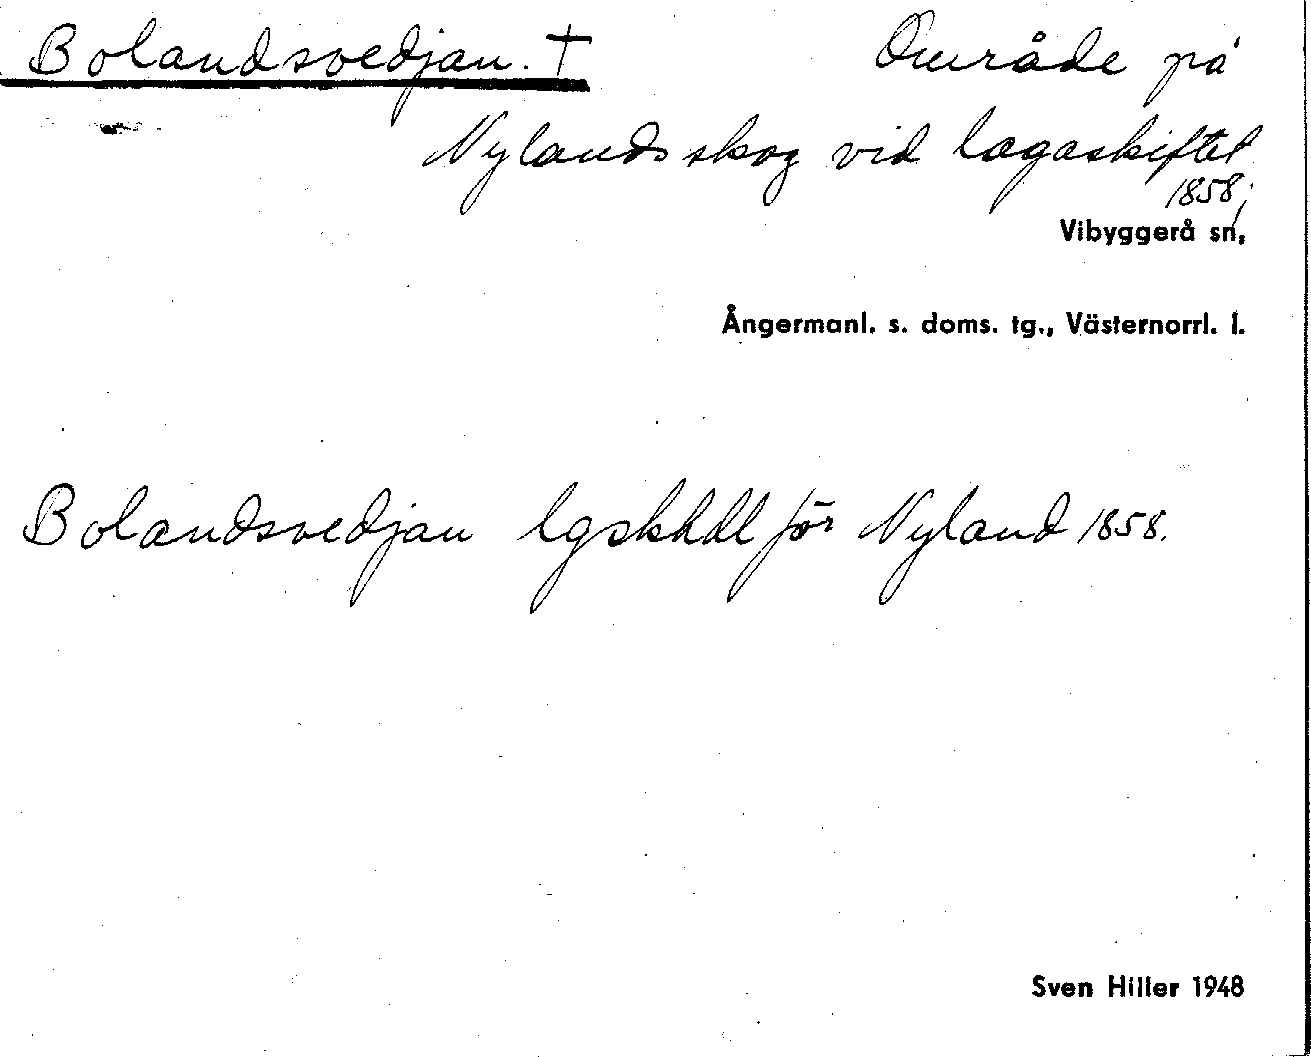 Bolandsvedjan. † Område på
Nylands skog vid lagaskiftet
1858;
Vibyggerå sn,
Ångermanl. s. doms. tg., Västernorrl. l.
Bolandsvedjan lgskhdl för Nyland 1858.
Sven Hiller 1948